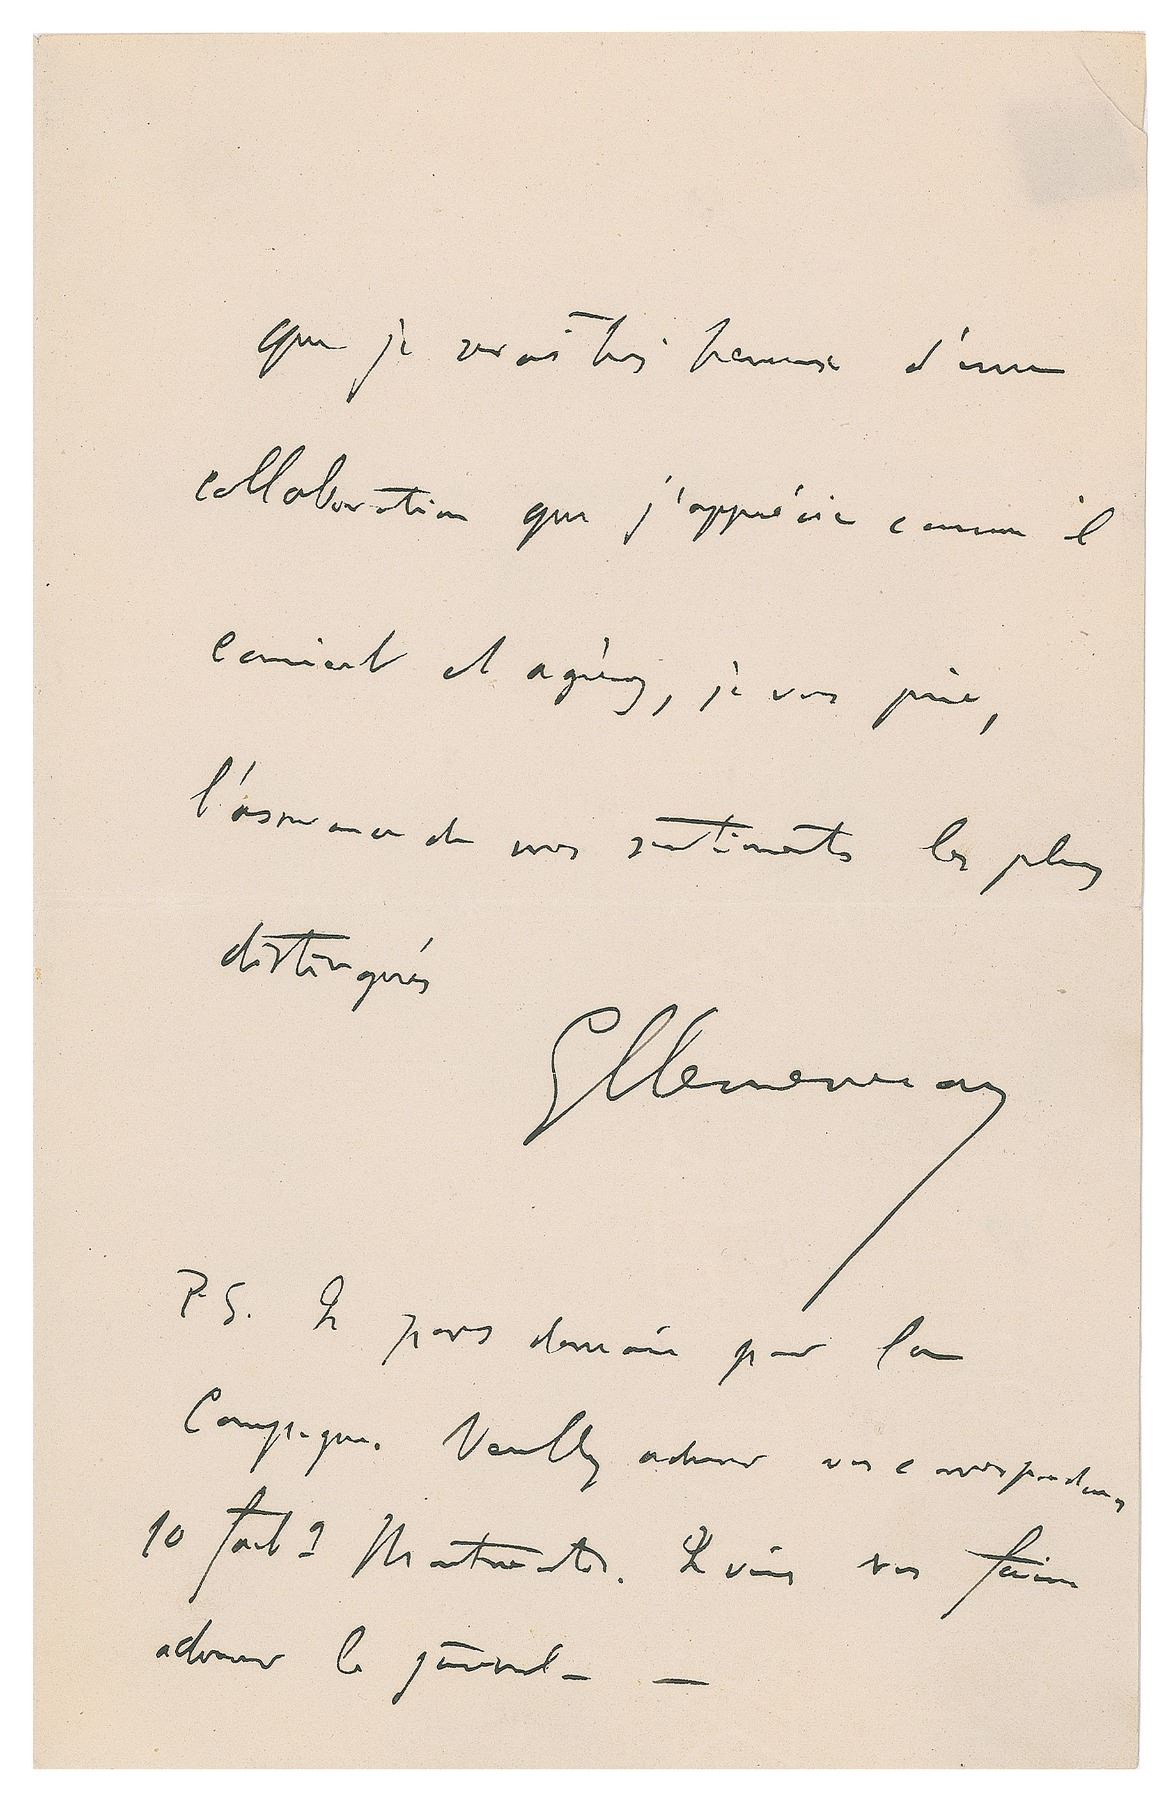 que je serais très heureux d'une
collaboration que j'apprécie comme il
convient et agréez, je vous prie,
l'assurance de mes sentiments les plus
distingués
GClemenceau
P.S. Je pars demain pour la
Campagne. Veuillez adresser vos correspondances
10 faub g Montmartre. Je vais vous faire
adresser le journal _ _